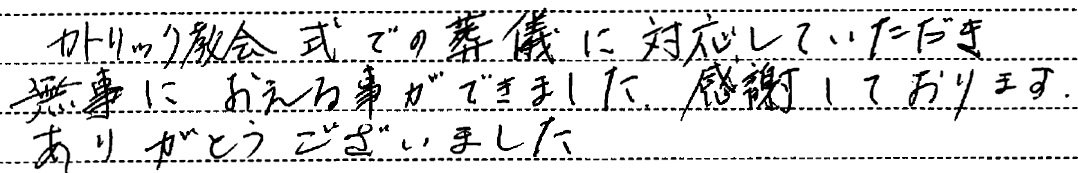 カトリック教会式での葬儀に対応していただき
無事におえる事ができました。感謝しております.
ありがとうございました